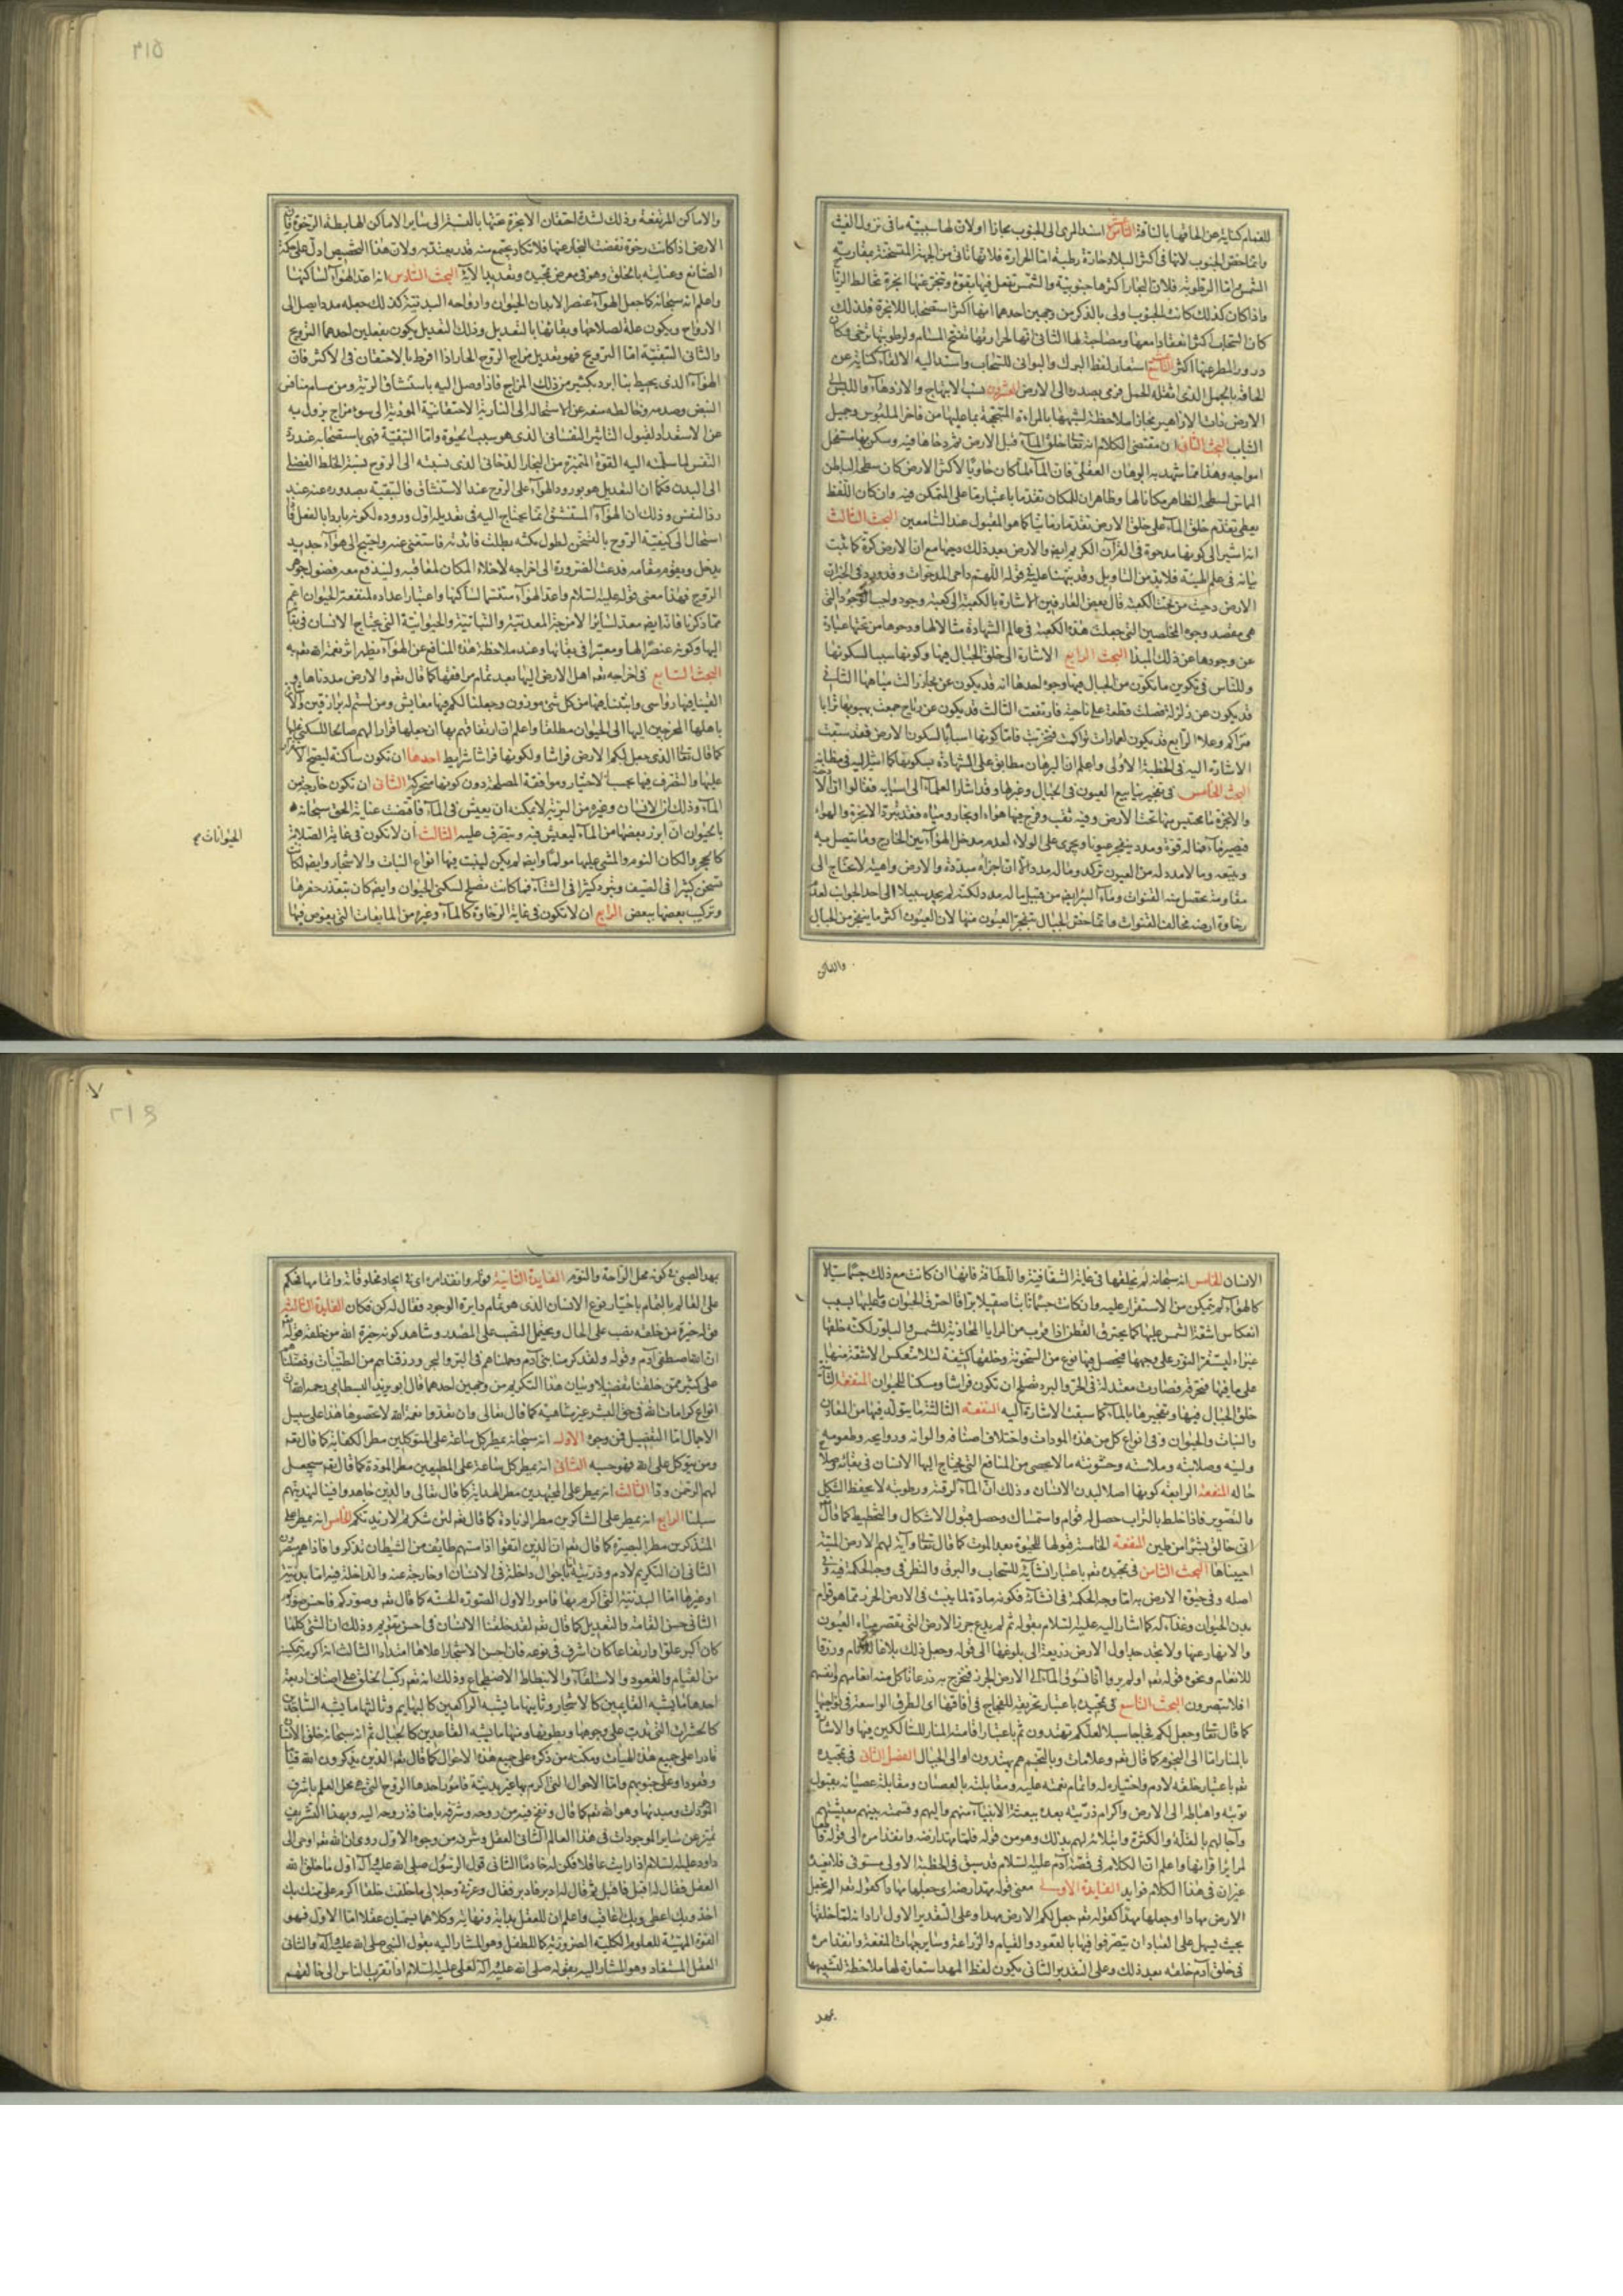 للغمام كناية عن الحاقها بالناقة الثامن عشر اسند المرى الى الجنوب مجازا اولان لها سببية ما فى نزول الغيث
وانما خص الجنوب لانها فى اكثر البلاد حارة رطبة اما الحرارة فلانها تاتى من الجهة المتسخنة بمقاربة
الشمس واما الرطوبة فلان البحار اكثرها جنوبية والشمس تفعل فيها بقوة وتبخر عنها ابخرة تخالط الرياح
واذا كان كذلك كانت الجنوب اولى بالذكر من وجهين احدهما انها اكثر استصحابا للابخرة فلذلك
كان السحاب اكثر انعقادا معها ومصاحبة لها الثانى انها لحرارتها تفتح المسام ولرطوبتها ترخى فكان
درور المطر عنها اكثر التاسع عشر استعار لفظ البرك والبوانى للسحاب واسند اليه الالقاء كناية عن
الحاقه بالجمل الذى اثقله الحمل فرمى بصدره الى الارض العشرون نسب الابتهاج والازدهاء واللبس الى
الارض ذات الازاهير مجازا ملاحظة لشبهها بالمراءة المتبجحة بما عليها من فاخر الملبوس وجميل
الثياب البحث الثانى ان مقتضى الكلام انه تعالى خلق الماء قبل الارض ثم دحاها فيه وسكن بها مستفحل
امواجه وهذا مما شهد به البرهان العقلى فان الماء لما كان حاويا لاكثر الارض كان سطحه الباطن
المماس لسطحه الظاهر مكانا لها وظاهر ان للمكان تقدما باعتبار ما على المتمكن فيه وان كان اللفظ
يعطى تقدم خلق الماء على خلق الارض تقدما زمانيا كما هو المقبول عند السامعين البحث الثالث
انه اشير الى كونها مدحوة فى القرآن الكريم ايضا والارض بعد ذلك دحيها مع ان الارض كرة كما ثبت
بيانه فى علم الهيئة فلا بد من التاويل وقد نبهنا عليه فى قوله اللهم داحى المدحوات وقد ورد فى الخبر ان
الارض دحيت من تحت الكعبة قال بعض العارفين الاشارة بالكعبة الى كعبة وجود واجب الوجود التى
هى مقصد وجوه المخلصين التى جعلت هذه الكعبة فى عالم الشهادة مثالا لها ودحوها من تحتها عبارة
عن وجودها عن ذلك المبدا البحث الرابع الاشارة الى خلق الجبال فيها وكونها سببا لسكونها
وللناس فى تكوين ما تكون من الجبال فيها وجوه احدها انه قد يكون عن بخار زالت مياهها الثانى
قد يكون عن زلزلة فصلت قطعة على ناحية فارتفعت الثالث قد يكون عن رياح جمعت بهبوبها ترابا
متراكم وعلا الرابع قد يكون لعمارات تراكمت فتخربت فاما كونها اسبابا لسكون الارض فقد سبقت
الاشارة اليه فى الخطبة الاولى واعلم ان البرهان مطابق على الشهادة بسكونها كما اشير اليه فى مظانه
البحث الخامس فى تفجير ينابيع العيون فى الجبال وغيرها وقد اشار العلماء الى اسبابه فقالوا ان الادخنة
والابخرة ما يحتبس منها تحت الارض وفيه ثقب وفرج فيها هواء او بخار ومياه فقد تبرد الابخرة والهواء
فيصير ماء فما له قوة ومدد ينفجر عيونا ويجرى على الولاء لعدم مدخل الهواء بين الخارج وما يتصل به
ويتبعه وما لا مدد له من العيون تركد وما له مدد الا ان اجزاءه مبددة والارض واهية لا تحتاج الى
مقاومة تحصل منه القنوات وماء البئر ايضا من قبيل ما له مدد لكنه لم يجد سبيلا الى احد الجوانب لعدم
رخاوة ارضه مخالف القنوات وانما خص الجبال بتفجر العيون منها لان العيون اكثر ما يتفجر من الجبال
والاماكن
والاماكن المرتفعة وذلك لشدة احتقان الابخرة تحتها بالنسبة الى سائر الاماكن الهابطة الرخوة فان
الارض اذا كانت رخوة نفضت البخار عنها فلا تكاد يجتمع منه قدر يعتد به ولان هذا التخصيص ادل على حكمة
الصانع وعنايته بالخلق وهو فى معرض تمجيده وتعديد الائه البحث السادس انه اعد الهواء لساكنها
واعلم انه سبحانه كما جعل الهواء عنصرا لابدان الحيوان وارواحه البدنية كذلك جعله مددا يصل الى
الارواح ويكون علة لصلاحها وبقائها بالتعديل وذلك التعديل يكون بفعلين احدهما الترويح
والثانى التنقية اما الترويح فهو تعديل مزاج الروح الحار اذا افرط بالاحتقان فى الاكثر فان
الهواء الذى يحيط بنا ابرد بكثير من ذلك المزاج فاذا وصل اليه باستنشاق الرية ومن مسام منافس
النبض وصدمه وخالطه منعه عن الاستحالة الى النارية الاحتقانية المودية الى سوء مزاج يزول به
عن الاستعداد لقبول التاثير النفسانى الذى هو سبب الحيوة واما التنقية فهى باستصحابه عند رد
النفس لما سلمته اليه القوة المميزة من البخار الدخانى الذى نسبته الى الروح نسبة الخلط الفضلى
الى البدن فكما ان التعديل هو بورود الهواء على الروح عند الاستنشاق فالتنقية بصدوره عنه عند
رد النفس وذلك ان الهواء المستنشق انما يحتاج اليه فى تعديله اول وروده لكونه باردا بالفعل فاذا
استحال الى كيفية الروح بالتسخن لطول مكثه بطلت فائدته فاستغنى عنه واحتيج الى هواء جديد
يدخل ويقوم مقامه فدعت الضرورة الى اخراجه لاخلاء المكان لمعاقبه وليندفع معه فضول جوهر
الروح فهذا معنى قوله عليه السلام واعد الهواء متنسما لساكنها واعتبار اعداده لمنفعة الحيوان اعم
مما ذكرنا فانه ايضا معد لسائر الامزجة المعدنية والنباتية والحيوانية التى يحتاج الانسان فى بقائه
اليها وكونه عنصرا لها ومعتبرا فى بقائها وعند ملاحظة هذه المنافع عن الهواء يظهر اثر نعمة الله تعم به
البحث السابع فى اخراجه تعم اهل الارض اليها بعد تمام مرافقها كما قال تعم والارض مددناها و
القينا فيها رواسى وانبتنا فيها من كل شئ موزون وجعلنا لكم فيها معايش ومن لستم له برازقين واراد
باهلها المحرجين اليها الى الحيوان مطلقا واعلم ان ارتفاقهم بها ان جعلها قرارا لهم صالحا للسكنى عليها
كما قال تعا الذى جعل لكم الارض فراشا ولكونها فراشا شرايط احدها ان تكون ساكنة ليصح الاستقرار
عليها والتصرف فيها بحسب الاختيار وموافقة المصلحة دون كونها متحركة الثانى ان تكون خارجة من
الماء وذلك ان الانسان وغيره من البرية لا يمكنه ان يعيش فى الماء فاقتضت عناية الحق سبحانه
بالحيوان ان ابرز بعضها من الماء ليعيش فيه ويتصرف عليه الثالث ان لا تكون فى غاية الصلابة
الحيوانات
كالحجر والكان النوم والمشى عليها مولما وايضا لم يكن لينبت فيها انواع النبات والاشجار وايضا لكانت
تسخن كثيرا فى الصيف وتبرد كثيرا فى الشتاء فما كانت تصلح لسكنى الحيوان وايضا كان يتعذر حفرها
وتركيب بعضها ببعض الرابع ان لا تكون فى غاية الرخاوة كالماء وغيره من المايعات التى يغوص فيها
الانسان الخامس انه سبحانه لم يخلقها فى غاية الشفافية واللطافة فانها ان كانت مع ذلك جسما سيالا
كالهواء لم يتمكن من الاستقرار عليه وان كانت جسما ثابتا صقيلا براقا احترق الحيوان وما عليها بسبب
انعكاس اشعة الشمس عليها كما يحترق القطن اذا قرب من المرايا المحاذية للشمس والبلور لكنه خلقها
غبراء ليستقر النور على وجهها فيحصل فيها نوع من السخونة وخلقها كثيفة لئلا تنعكس الاشعة منها
على ما فيها فتحرقه فصارت معتدلة فى الحر والبرد تصلح ان تكون فراشا ومسكنا للحيوان المنفعة الثانية
خلق الجبال فيها وتفجيرها بالماء كما سبقت الاشارة اليه المنفعة الثالثة ما يتولد فيها من المعادن
والنبات والحيوان وفى انواع كل من هذه المولدات واختلاف اصنافه والوانه وروايحه وطعومه
ولينه وصلابته وملاسته وخشونته ما لا يحصى من المنافع التى يحتاج اليها الانسان فى بقائه وصلاح
حاله المنفعة الرابعة كونها اصلا لبدن الانسان وذلك ان الماء لرقته ورطوبته لا يحفظ الشكل
والتصوير فاذا خلط بالتراب حصل له قوام واستمساك وحصل قبول الاشكال والتخطيط كما قال
انى خالق بشرا من طين المنفعة الخامسة قبولها للحيوة بعد الموت كما قال تعا وآية لهم الارض الميتة
احييناها البحث الثامن فى تمجيده تعم باعتبار انشائه للسحاب والبرق والنظر فى وجه الحكمة فيه وفى
اصله وفى حيوة الارض به اما وجه الحكمة فى انشائه فكونه مادة لما ينبت فى الارض الحرز مما هو قوام
بدن الحيوان وغذاء له كما اشار اليه عليه السلام بقوله ثم لم يدع جرز الارض التى تقصر مياه العيون
والانهار عنها ولا تجد جداول الارض ذريعة الى بلوغها الى قوله وجعل ذلك بلاغا للانام ورزقا
للانعام ونحوه قوله تعم اولم يروا انا نسوق الماء الى الارض الجرز فنخرج به زرعا تاكل منه انعامهم وانفسهم
افلا يبصرون البحث التاسع فى تمجيده باعتبار تخريقه للفجاج فى آفاقها اى الطرق الواسعة فى نواحيها
كما قال تعا وجعل لكم فجاجا سبلا لعلكم تهتدون ثم باعتبار اقامة المنار للسالكين فيها والاشارة
بالمنار اما الى النجوم كما قال تعم وعلامات وبالنجم هم يهتدون او الى الجبال الفصل الثانى فى تمجيده
تعم باعتبار خلقه لادم واختياره له واتمام نعمته عليه ومقابلته بالعصيان ومقابلة عصيانه بقبول
توبته واهباطه الى الارض واكرام ذريته بعده ببعثة الانبياء منهم واليهم وقسمته بينهم معيشتهم
وآجالهم بالقلة والكثرة وابتلائه لهم بذلك وهو من قوله فلما مهد ارضه وانفذ امره الى قوله
واعلم ان الكلام فى قصة آدم عليه السلام قد سبق فى الخطبة الاولى مستوفى فلا نعيده
غير ان فى هذا الكلام فوايد الفايدة الاولى معنى قوله مهد ارضه اى جعلها مهادا كقوله تعم الم نجعل
الارض مهادا او جعلها مهدا كقوله تعم جعل لكم الارض مهدا وعلى التقدير الاول اراد انه لما خلقها
بحيث يسهل على العباد ان يتصرفوا فيها بالقعود والقيام والزراعة وساير جهات المنفعة وانفذ امره
فى خلق آدم خلقه بعد ذلك وعلى التقدير الثانى يكون لفظ المهد استعارة لها ملاحظة لتشبيهها
بمهد
بمهد الصبى فى كونه محل الراحة والنوم الفايدة الثانية قوله وانفذ امره اى فى ايجاد مخلوقاته واتمامها فحكم
على العالم بالتمام باختيار نوع الانسان الذى هو تمام دايرة الوجود فقال له كن فكان الفايدة الثالثة
قوله خيرة من خلقه نصب على الحال ويحتمل النصب على المصدر وشاهد كونه خيرة الله من خلقه قوله
ان الله اصطفى آدم وقوله ولقد كرمنا بنى آدم وحملناهم فى البر والبحر ورزقناهم من الطيبات وفضلناهم
على كثير ممن خلقنا تفضيلا وبيان هذا التكريم من وجهين احدهما قال ابو يزيد البسطامى رحمه الله ان
انواع كرامات الله فى حق البشر غير متناهية كما قال تعالى وان تعدوا نعمة الله لا تحصوها هذا على سبيل
الاجمال اما التفصيل فمن وجوه الاول انه سبحانه يمطر كل ساعة على المتوكلين مطر الكفاية كما قال تعم
ومن يتوكل على الله فهو حسبه الثانى انه يمطر كل ساعة على المطيعين مطر المودة كما قال تعم سيجعل
لهم الرحمن ودا الثالث انه يمطر على المجتهدين مطر الهداية كما قال تعالى والذين جاهدوا فينا لنهدينهم
سبلنا الرابع انه يمطر على الشاكرين مطر الزيادة كما قال تعم لئن شكرتم لازيدنكم الخامس انه يمطر على
المتذكرين مطر البصيرة كما قال تعم ان الذين اتقوا اذا مسهم طايف من الشيطان تذكروا فاذا هم مبصرون
الثانى ان التكريم لادم وذريته باحوال داخلة فى الانسان او خارجة عنه والداخلة فيه اما بدنية
او غيرها اما البدنية التى اكرم بها فامور الاول الصورة الحسنة كما قال تعم وصوركم فاحسن صوركم
الثانى حسن القامة والتعديل كما قال تعم لقد خلقنا الانسان فى احسن تقويم وذلك ان الشئ كلما
كان اكبر علوا وارتفاعا كان اشرف فى نوعه فان احسن الاشجار اعلاها امتدادا الثالث انه اكرمه بتمكينه
من القيام والقعود والاستلقاء والانبطاح والاضطجاع وذلك انه تعم ركب الخلق على اصناف اربعة
احدها ما يشبه القايمين كالاشجار وثانيها ما يشبه الراكعين كالبهايم وثالثها ما يشبه الساجدين
كالحشرات التى تدب على وجوهها وبطونها ومنها ما يشبه القاعدين كالجبال ثم انه سبحانه خلق الانسان
قادرا على جميع هذه الهيئات ومكنه من ذكره على جميع هذه الاحوال كما قال تعم الذين يذكرون الله قياما
وقعودا وعلى جنوبهم واما الاحوال التى اكرم بها غير بدنية فامور احدها الروح التى هى محل العلم باشرف
الموجودات ومبدئها وهو الله تعم كما قال ونفخ فيه من روحه وشرفه باضافة روحه اليه وبهذا التشريف
تميز عن ساير الموجودات فى هذا العالم الثانى العقل وشرفه من وجوه الاول روى ان الله تعم اوحى الى
داود عليه السلام اذا رايت عاقلا فكن له خادما الثانى قول الرسول صلى الله عليه وآله اول ما خلق الله
العقل فقال له اقبل فاقبل ثم قال له ادبر فادبر فقال وعزتى وجلالى ما خلقت خلقا اكرم على منك بك
اخذ وبك اعطى وبك اعاقب واعلم ان للعقل بداية ونهاية وكلاهما يسميان عقلا اما الاول فهو
القوة المهيئة للعلوم الكلية الضرورية كما للطفل وهو المشار اليه بقول النبى صلى الله عليه وآله والثانى
العقل المستفاد وهو المشار اليه بقوله صلى الله عليه وآله لعلى عليه السلام اذا تقرب الناس الى خالقهم